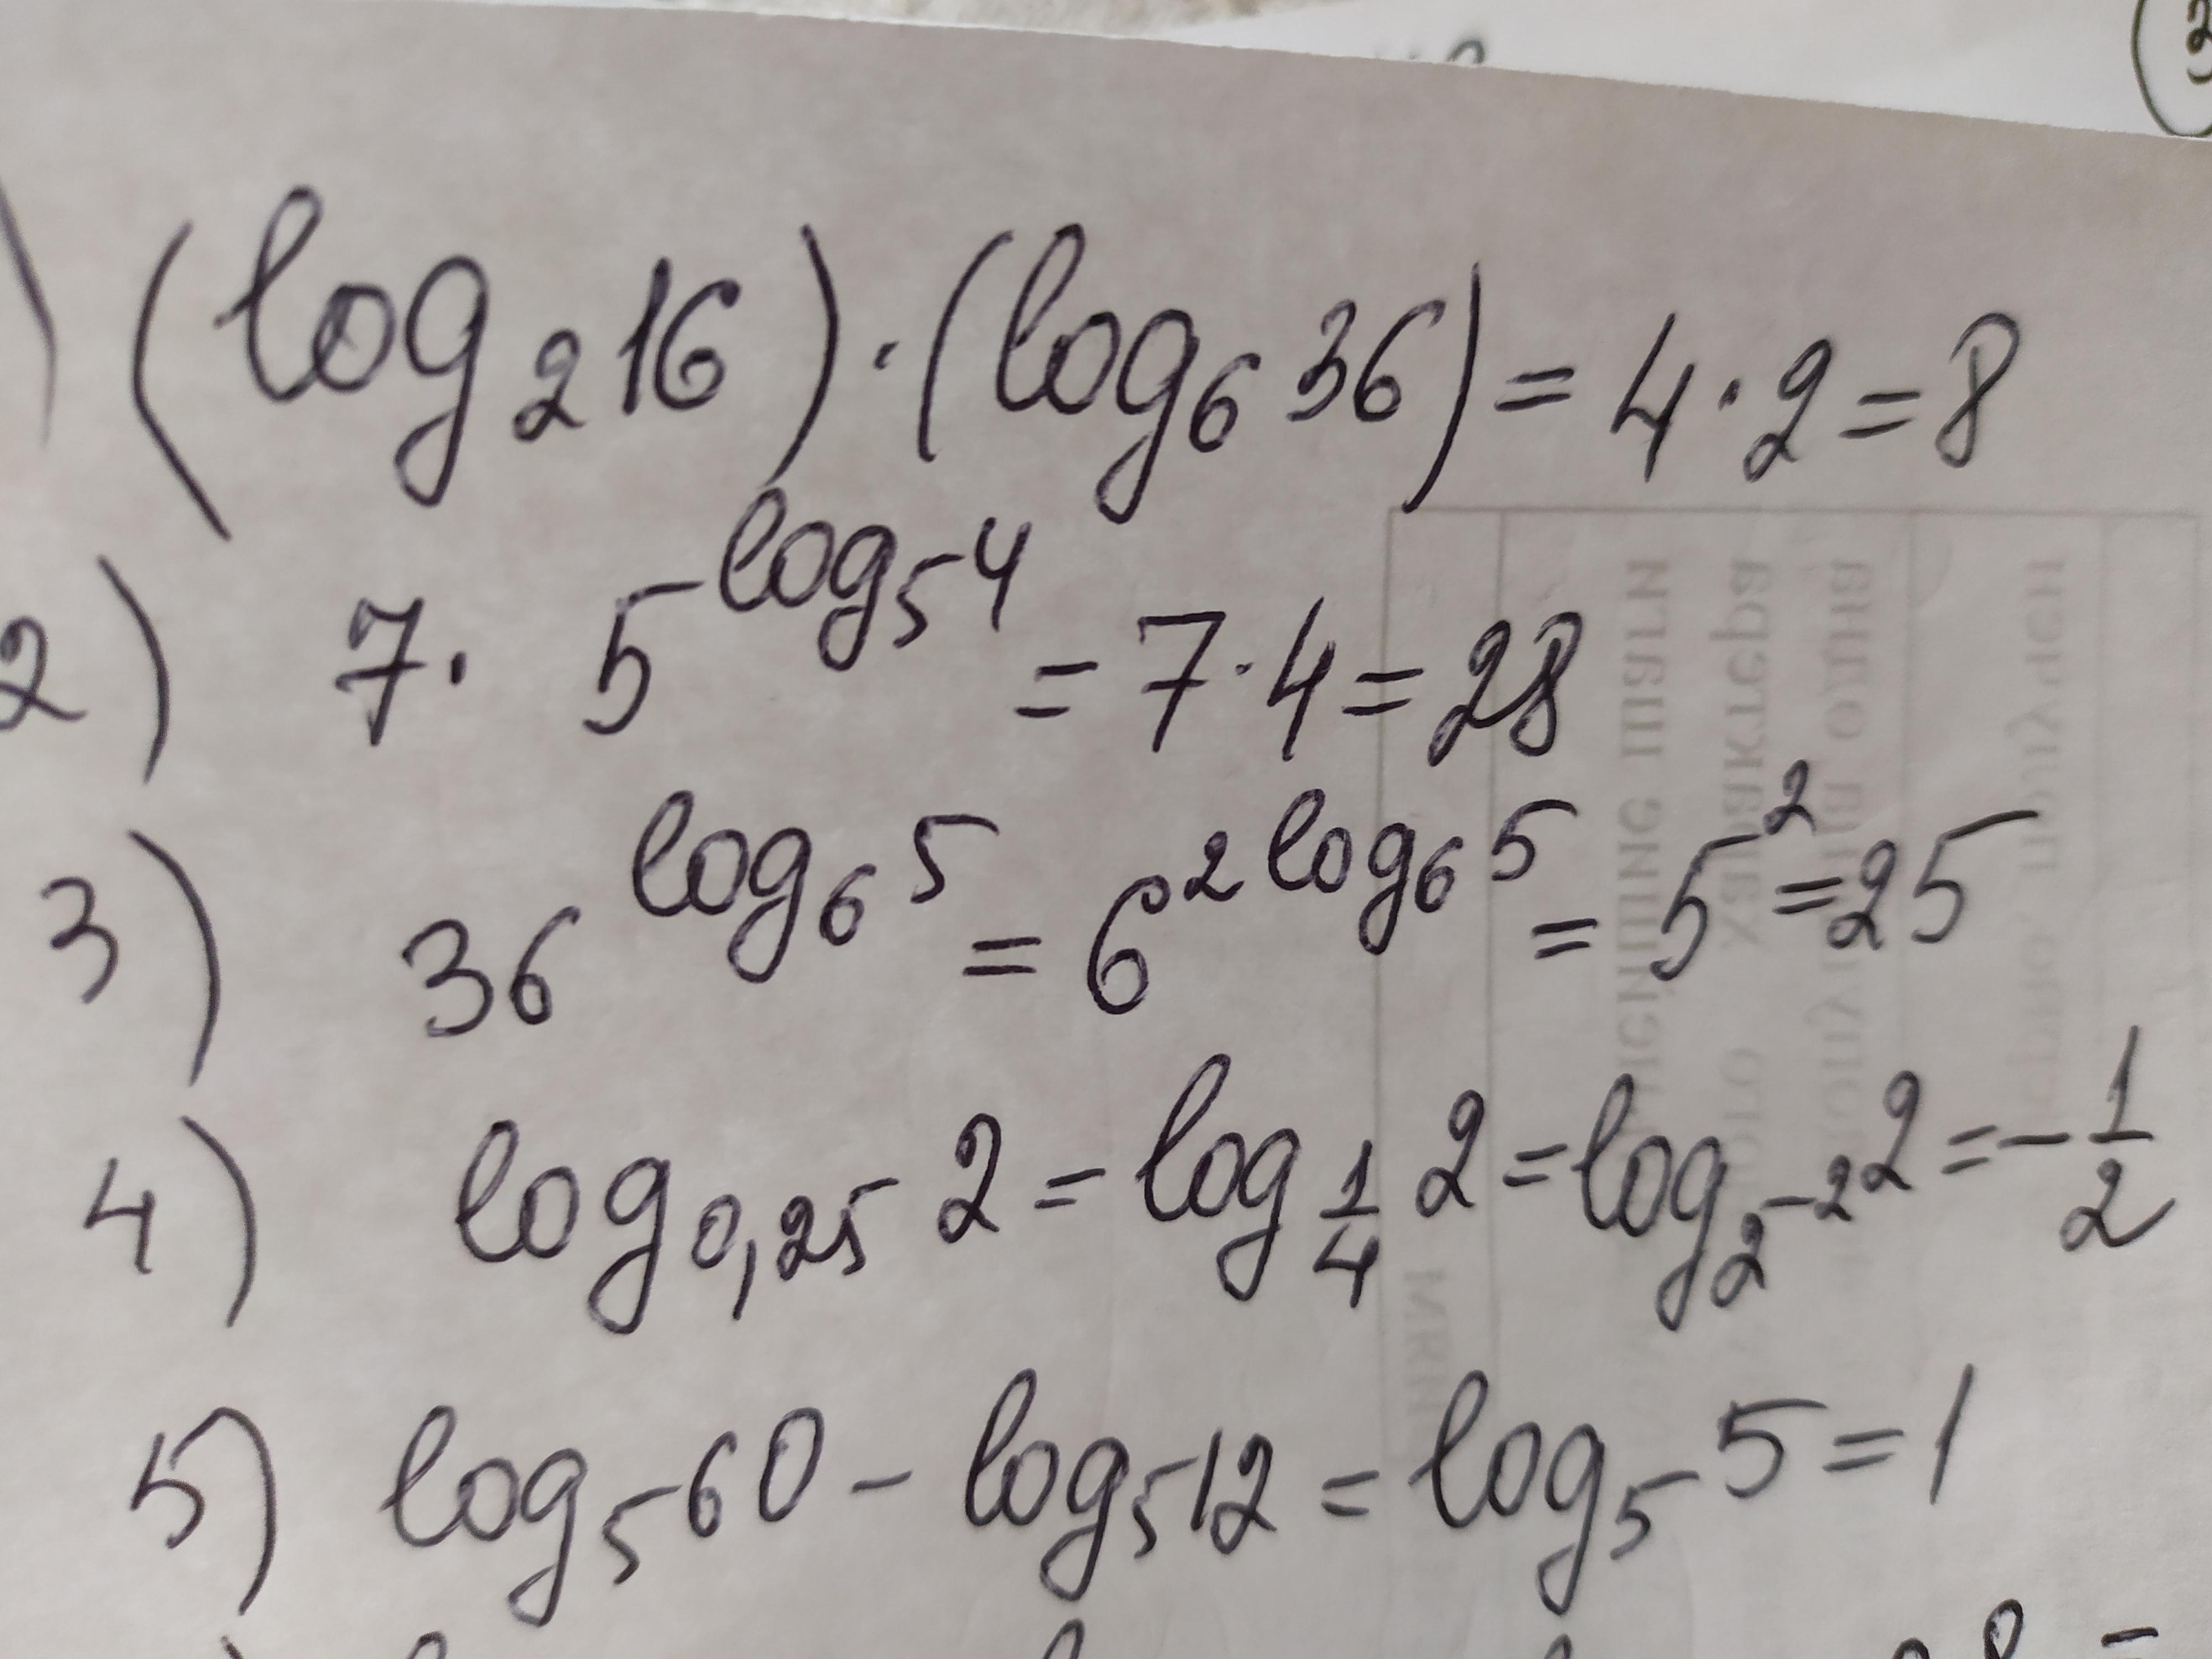 ) (log₂ 16) · (log₆ 36) = 4 · 2 = 8
2) 7 · 5^(log₅ 4) = 7 · 4 = 28
3) 36^(log₆ 5) = 6^(2 log₆ 5) = 5² = 25
4) log_(0,25) 2 = log_(1/4) 2 = log_(2⁻²) 2 = -1/2
5) log₅ 60 - log₅ 12 = log₅ 5 = 1